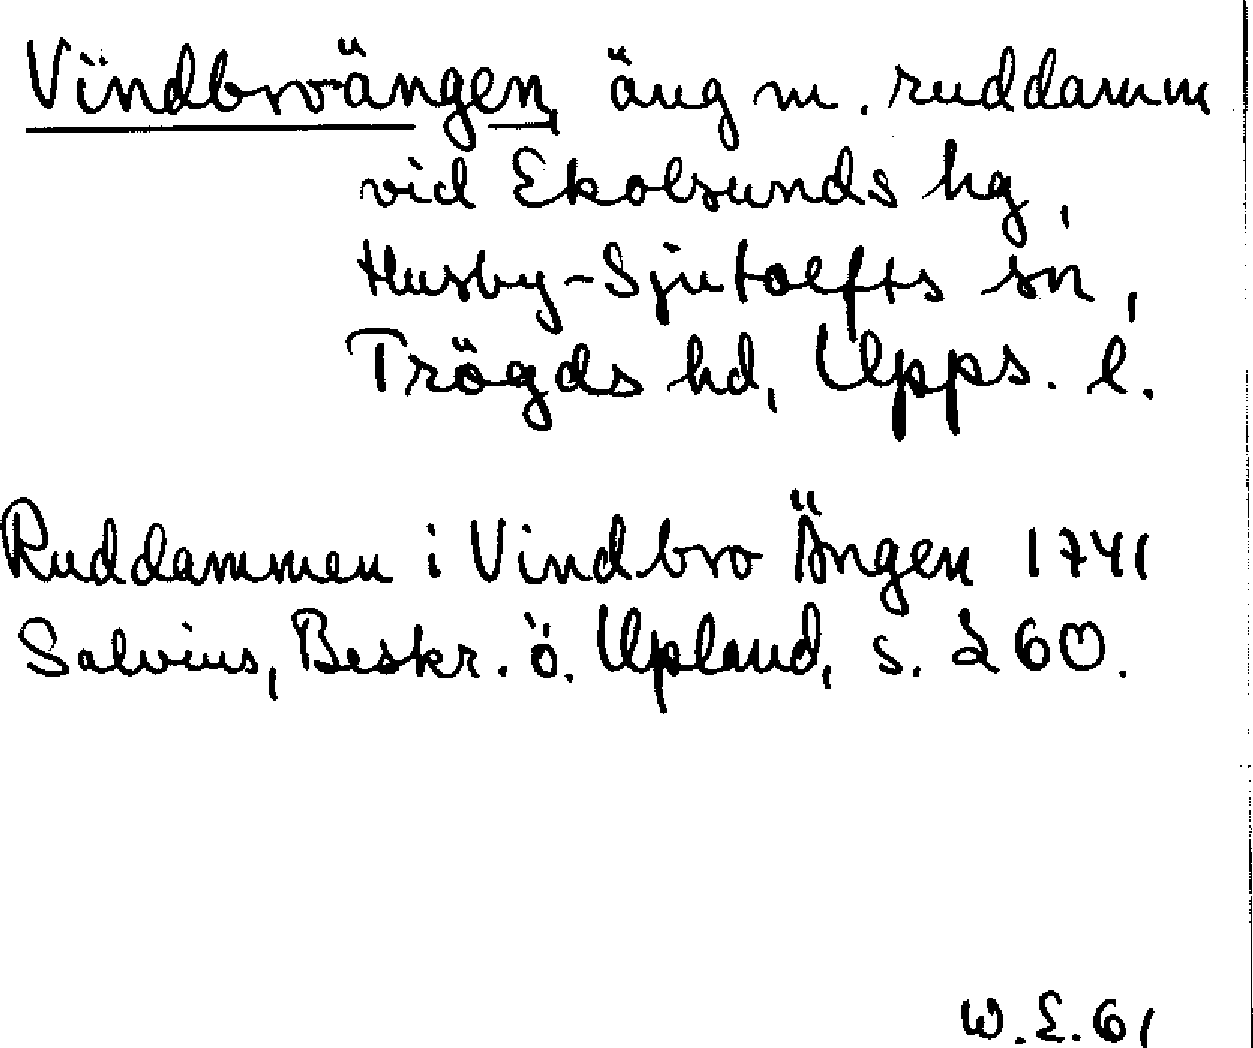 Vindbroängen, äng m. ruddamm
vid Ekolsunds hg,
Husby-Sjutolfts sn,
Trögds hd, Upps. l.
Ruddammen i Vindbro Ängen 1741
Salvius, Beskr. ö. Upland, s. 260.
W.E.61